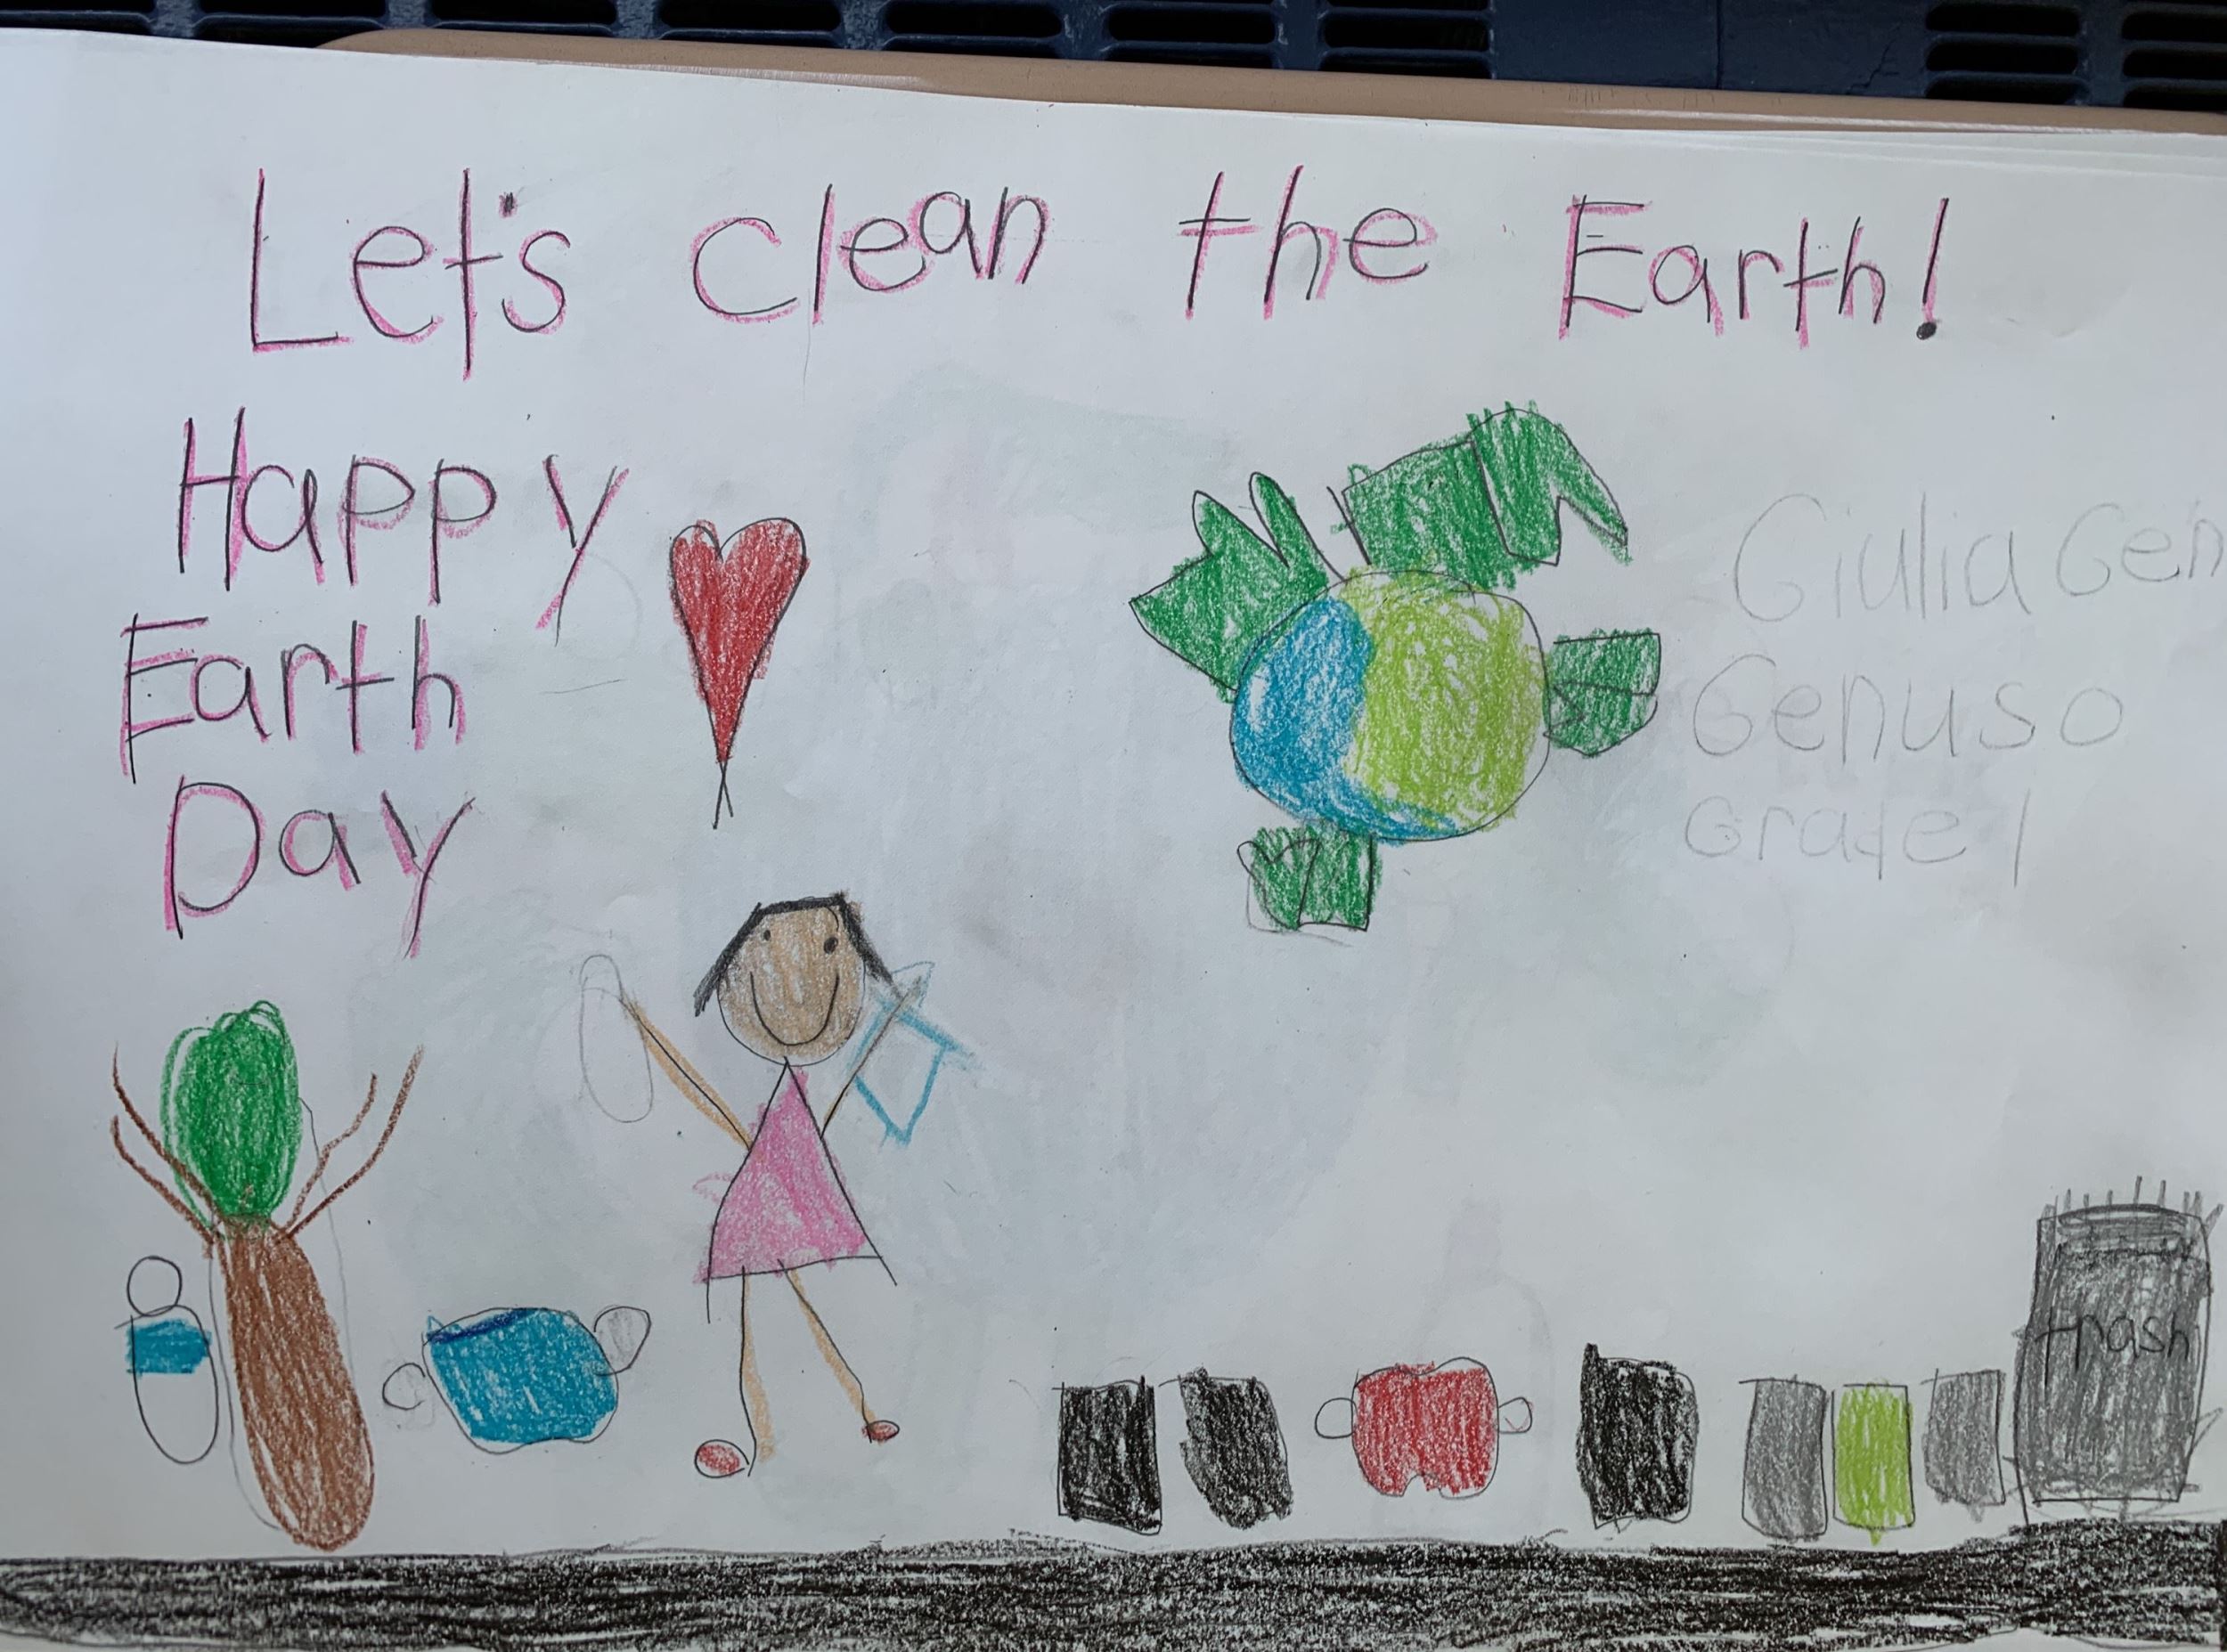 Let's clean the Earth!
Happy
Earth
Day
Giulia Gen
Genuso
Grade 1
trash